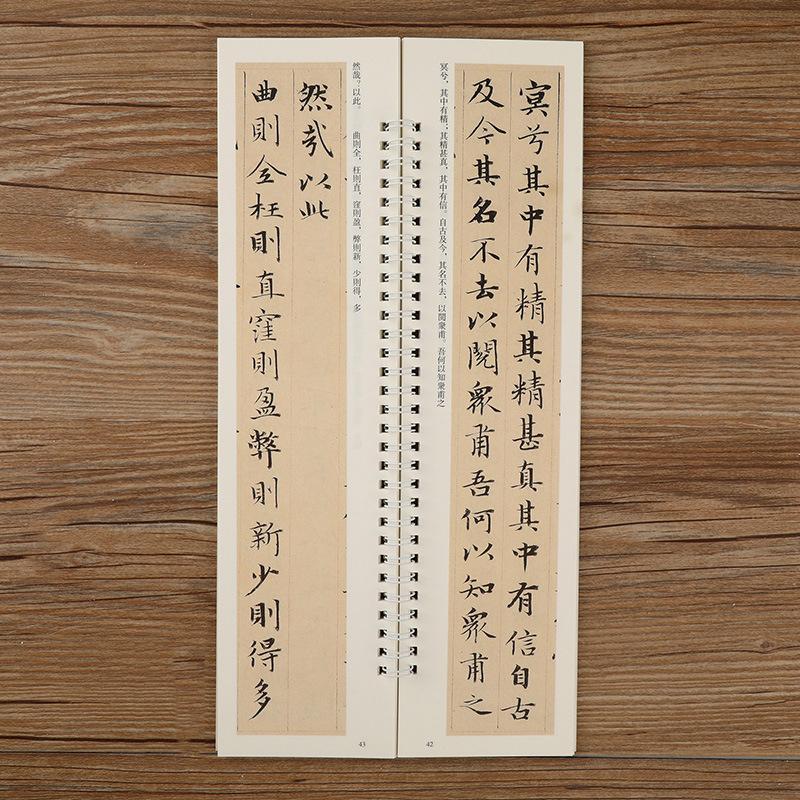 冥兮其中有精其精甚真其中有信自古
及今其名不去以閱衆甫吾何以知衆甫之
冥兮，其中有精；其精甚真，其中有信。自古及今，其名不去，以閱衆甫。吾何以知衆甫之
42
然哉？以此。 曲則全，枉則直，窪則盈，弊則新，少則得，多
然哉以此
曲則全枉則直窪則盈弊則新少則得多
43